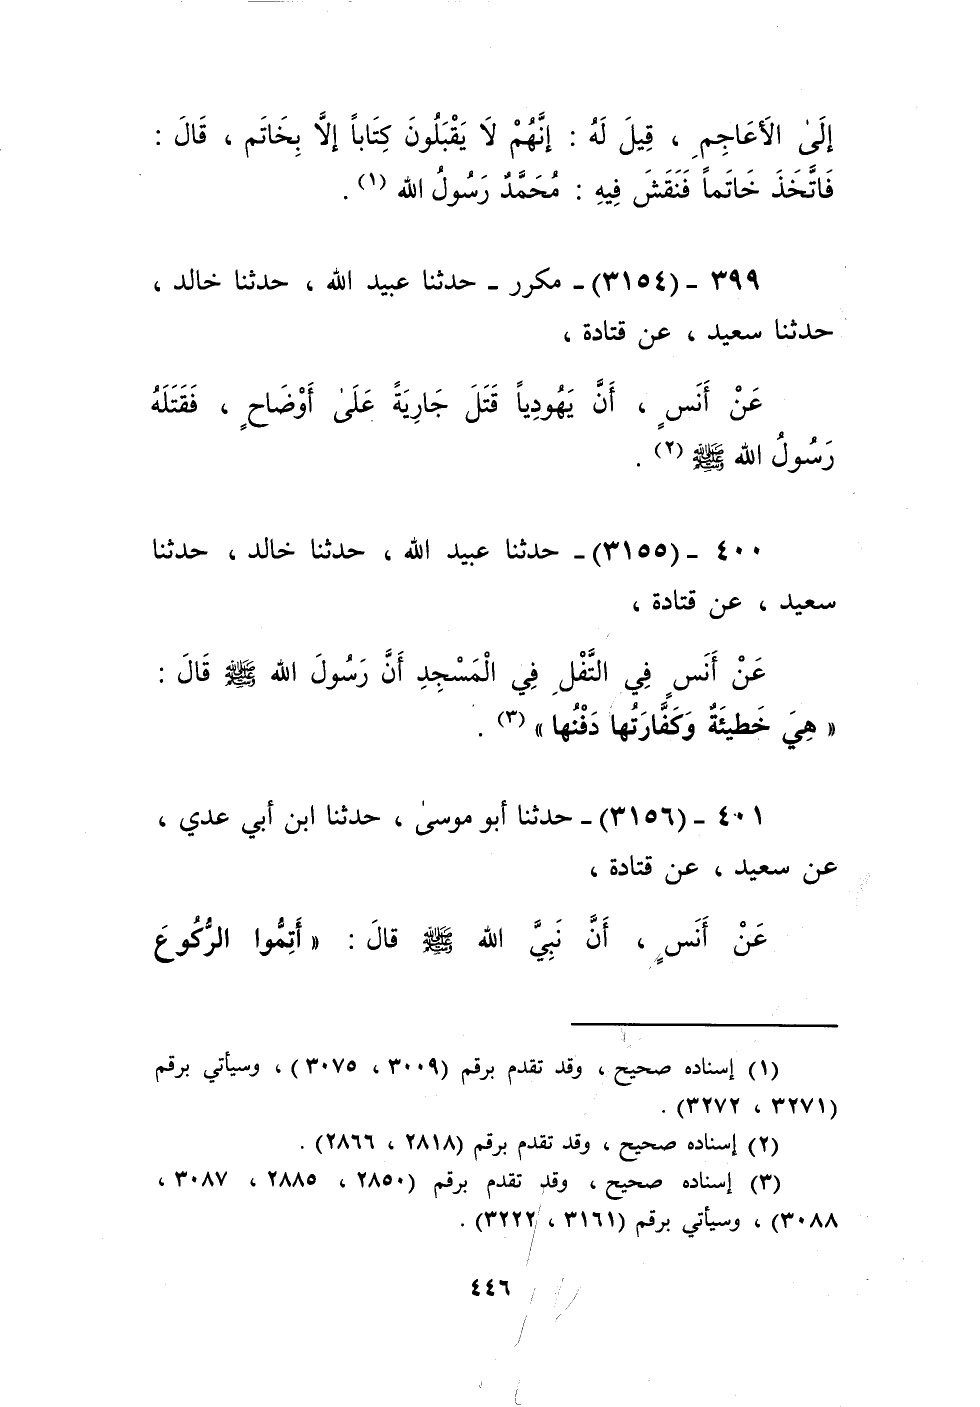 إِلَىٰ الَأعَاجِمِ ، قِيلَ لَهُ : إِنَّهُمْ لَا يَقْبَلُونَ كِتَاباً إلَّا بِخَاتَمٍ ، قَالَ :
فَاتَّخَذَ خَاتَماً فَنَقَشَ فِيهِ : مُحَمَّدٌ رَسُولُ الله (١) .
٣٩٩ - (٣١٥٤) - مكرر - حدثنا عبيد الله ، حدثنا خالد ،
حدثنا سعيد ، عن قتادة ،
عَنْ أَنَسٍ ، أَنَّ يَهُودِياً قَتَلَ جَارِيَةً عَلَىٰ أَوْضَاحٍ ، فَقَتَلَهُ
رَسُولُ الله ﷺ (٢) .
٤٠٠ - (٣١٥٥) - حدثنا عبيد الله ، حدثنا خالد ، حدثنا
سعيد ، عن قتادة ،
عَنْ أَنَسٍ فِي التَّفْلِ فِي الْمَسْجِدِ أَنَّ رَسُولَ الله ﷺ قَالَ :
« هِيَ خَطيئَةٌ وَكَفَّارَتُها دَفْنُها » (٣) .
٤٠١ - (٣١٥٦) - حدثنا أبو موسىٰ ، حدثنا ابن أبي عدي ،
عن سعيد ، عن قتادة ،
عَنْ أَنَسٍ ، أَنَّ نَبِيَّ الله ﷺ قالَ : « أَتِمُّوا الرُّكُوعَ
(١) إسناده صحيح ، وقد تقدم برقم (٣٠٠٩ ، ٣٠٧٥) ، وسيأتي برقم
(٣٢٧١ ، ٣٢٧٢) .
(٢) إسناده صحيح ، وقد تقدم برقم (٢٨١٨ ، ٢٨٦٦) .
(٣) إسناده صحيح ، وقد تقدم برقم (٢٨٥٠ ، ٢٨٨٥ ، ٣٠٨٧ ،
٣٠٨٨) ، وسيأتي برقم (٣١٦١ ، ٣٢٢٢) .
٤٤٦